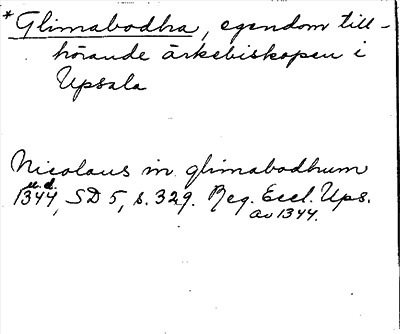 * Glimabodha, egendom till-
hörande ärkebiskopen i
Upsala
Nicolaus in glimabodhum
u.d.
1344, SD 5, s. 329. Reg. Eccl. Ups.
av 1344.